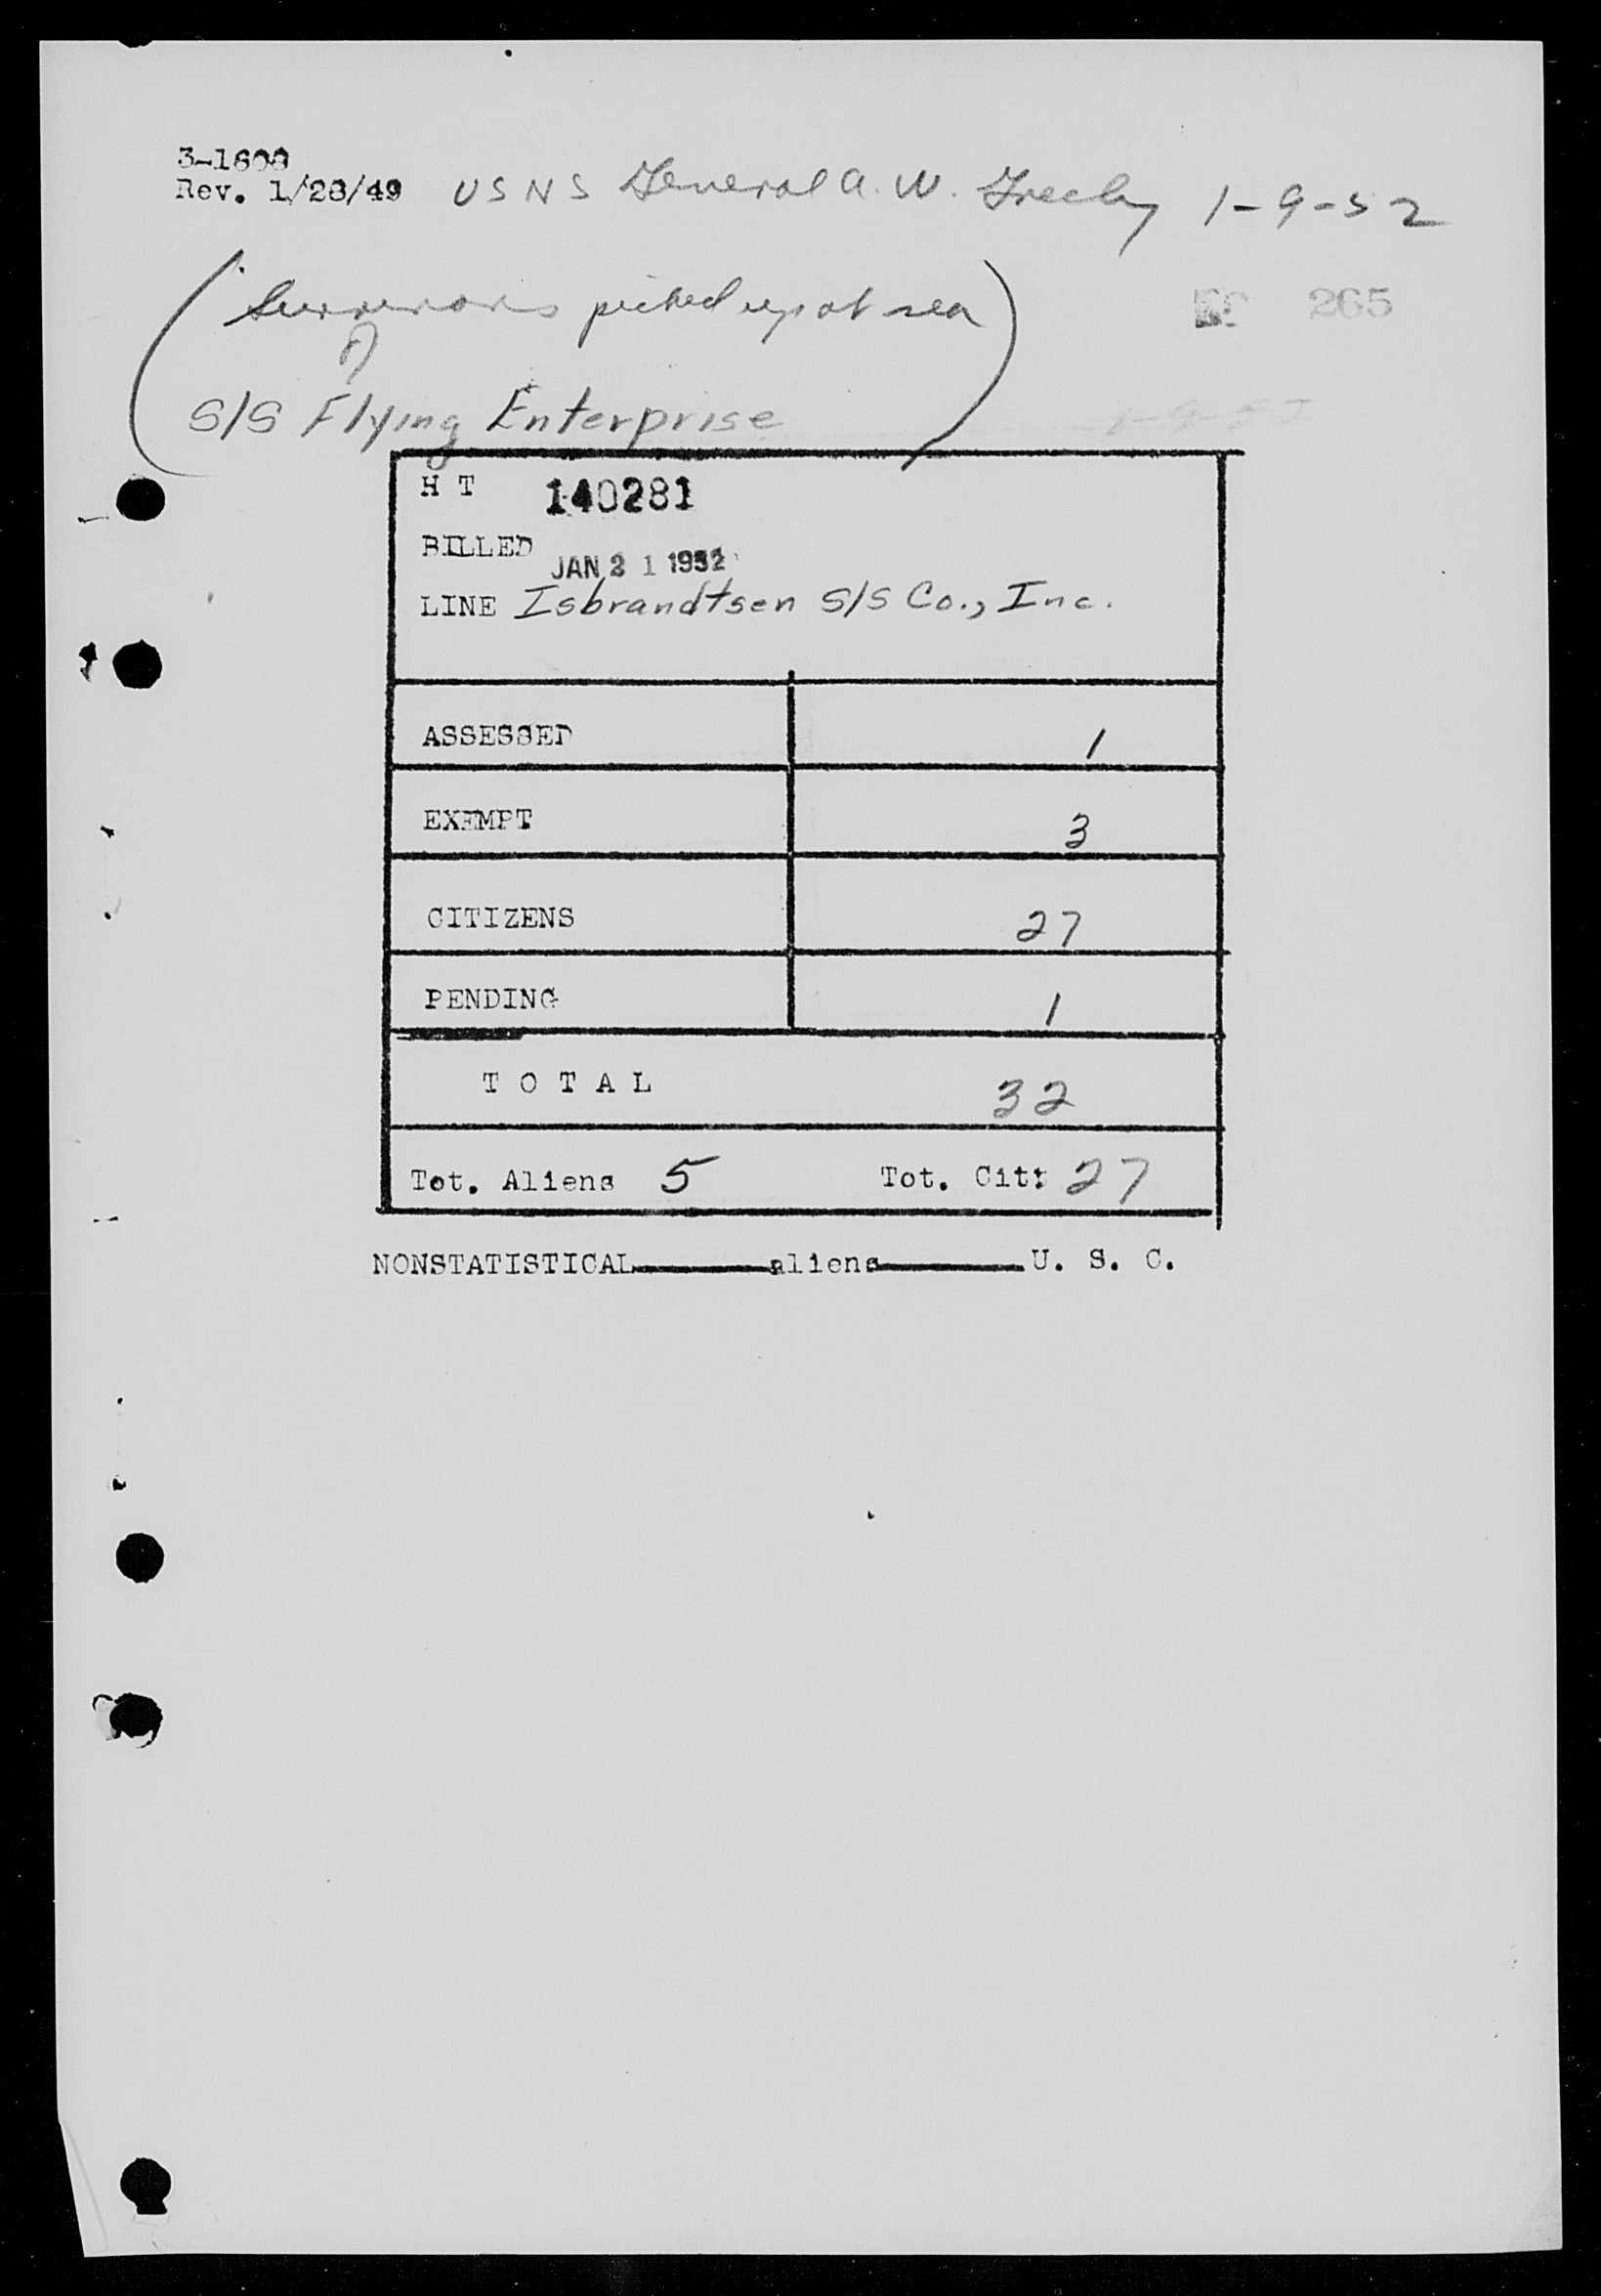 3-1600
Rev. 1/28/49 USNS General A. W. Greely 1-9-52
(Survivors picked up at sea)
of
265
S/S Flying Enterprise
H T 140281
BILLED JAN 21 1952
LINE Isbrandtsen S/S Co., Inc.
ASSESSED 1
EXEMPT 3
CITIZENS 27
PENDING 1
TOTAL 32
Tot. Aliens 5 Tot. Cit: 27
NONSTATISTICAL aliens U. S. C.